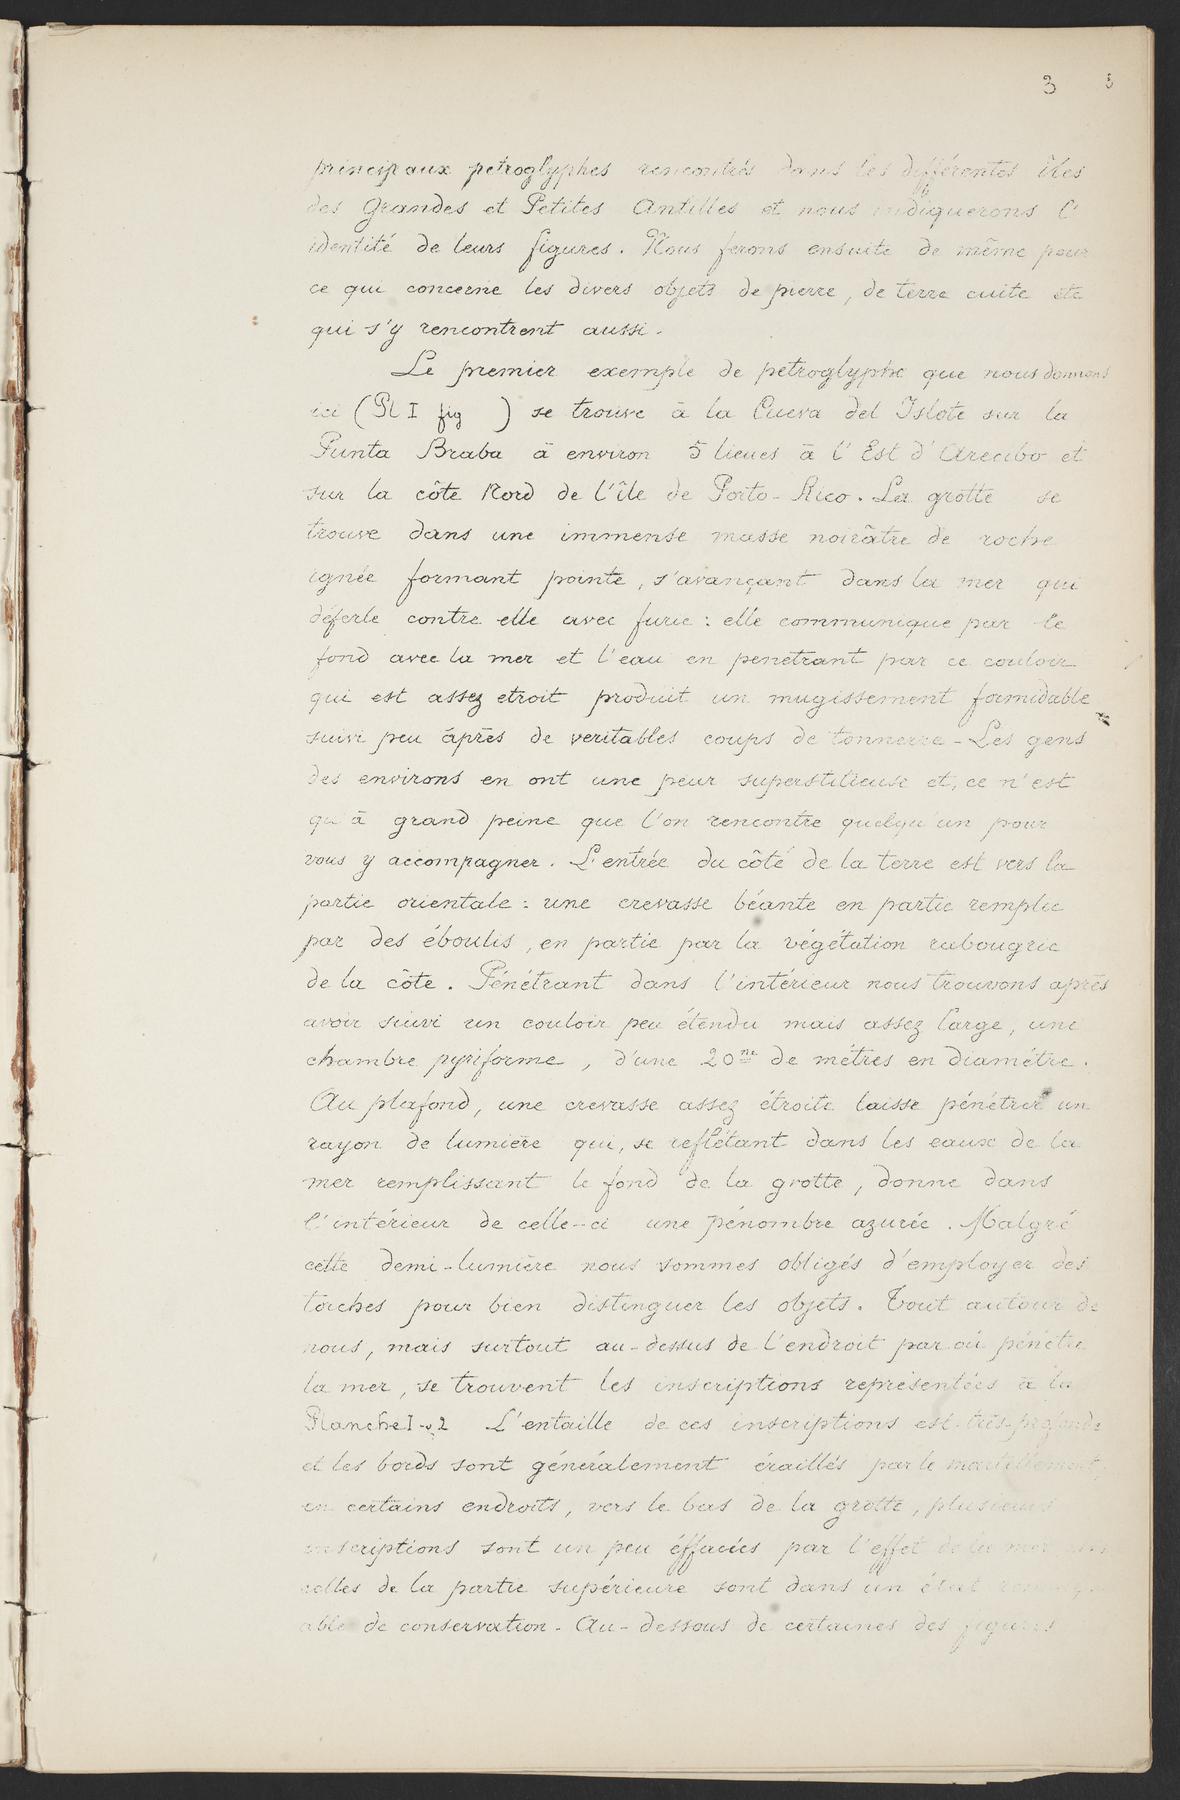 3 3
principaux petroglyphes rencontrés dans les différentes Iles
des Grandes et Petites Antilles et nous indiquerons l'
identité de leurs figures. Nous ferons ensuite de même pour
ce qui concerne les divers objets de pierre, de terre cuite etc
qui s'y rencontrent aussi.
Le premier exemple de petroglyphe que nous donnons
ici (Pl I fig ) se trouve à la Cueva del Islote sur la
Punta Braba à environ 5 lieues à l'Est d'Arecibo et
sur la côte Nord de l'île de Porto-Rico. La grotte se
trouve dans une immense masse noirâtre de roche
ignée formant pointe, s'avançant dans la mer qui
déferle contre elle avec furie : elle communique par le
fond avec la mer et l'eau en penetrant par ce couloir
qui est assez etroit produit un mugissement formidable
suivi peu àprès de veritables coups de tonnerre - Les gens
des environs en ont une peur superstitieuse et, ce n'est
qu'à grand peine que l'on rencontre quelqu'un pour
vous y accompagner. L'entrée du côté de la terre est vers la
partie orientale : une crevasse béante en partie remplie
par des éboulis, en partie par la végétation rabougrie
de la côte. Pénétrant dans l'intérieur nous trouvons après
avoir suivi un couloir peu étendu mais assez large, une
chambre pyriforme, d'une 20ne de métres en diamétre.
Au plafond, une crevasse assez étroite laisse pénétrer un
rayon de lumière qui, se reflétant dans les eaux de la
mer remplissant le fond de la grotte, donne dans
l'intérieur de celle-ci une pénombre azurée. Malgré
cette demi-lumière nous sommes obligés d'employer des
torches pour bien distinguer les objets. Tout autour de
nous, mais surtout au-dessus de l'endroit par où pénètre
la mer, se trouvent les inscriptions représentées à la
Planche I-2 L'entaille de ces inscriptions est très-profonde
et les bords sont généralement éraillés par le martellement,
en certains endroits, vers le bas de la grotte, plusieurs
inscriptions sont un peu éffacées par l'effet de la mer
celles de la partie supérieure sont dans un état remarqu-
able de conservation - Au-dessous de certaines des figures